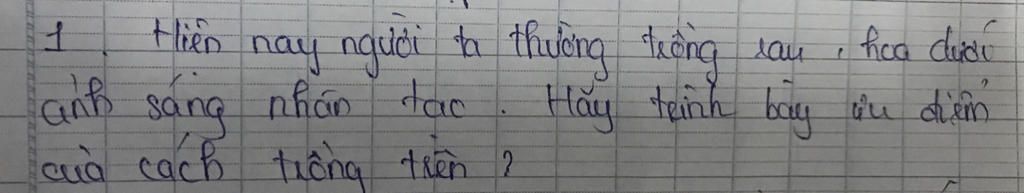 1. Hiện nay người ta thường trồng rau, hoa dưới
ánh sáng nhân tạo. Hãy trình bày ưu điểm
của cách trồng trên?